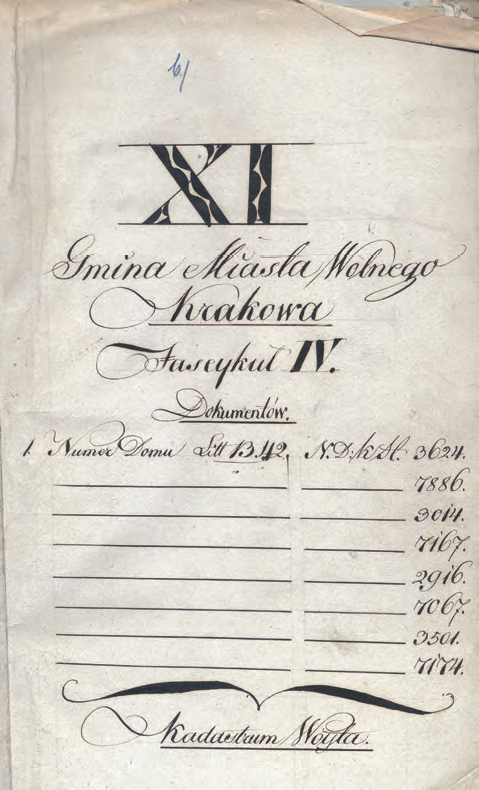 6/
XI
Gmina Miasta Wolnego
Krakowa
Fascykuł IV.
Dokumentów.
1. Numer Domu Litt 13.42. N.D.k.H. 3624.
7886.
3014.
7167.
2916.
7067.
3501.
7174.
Kadastrum Woyta.